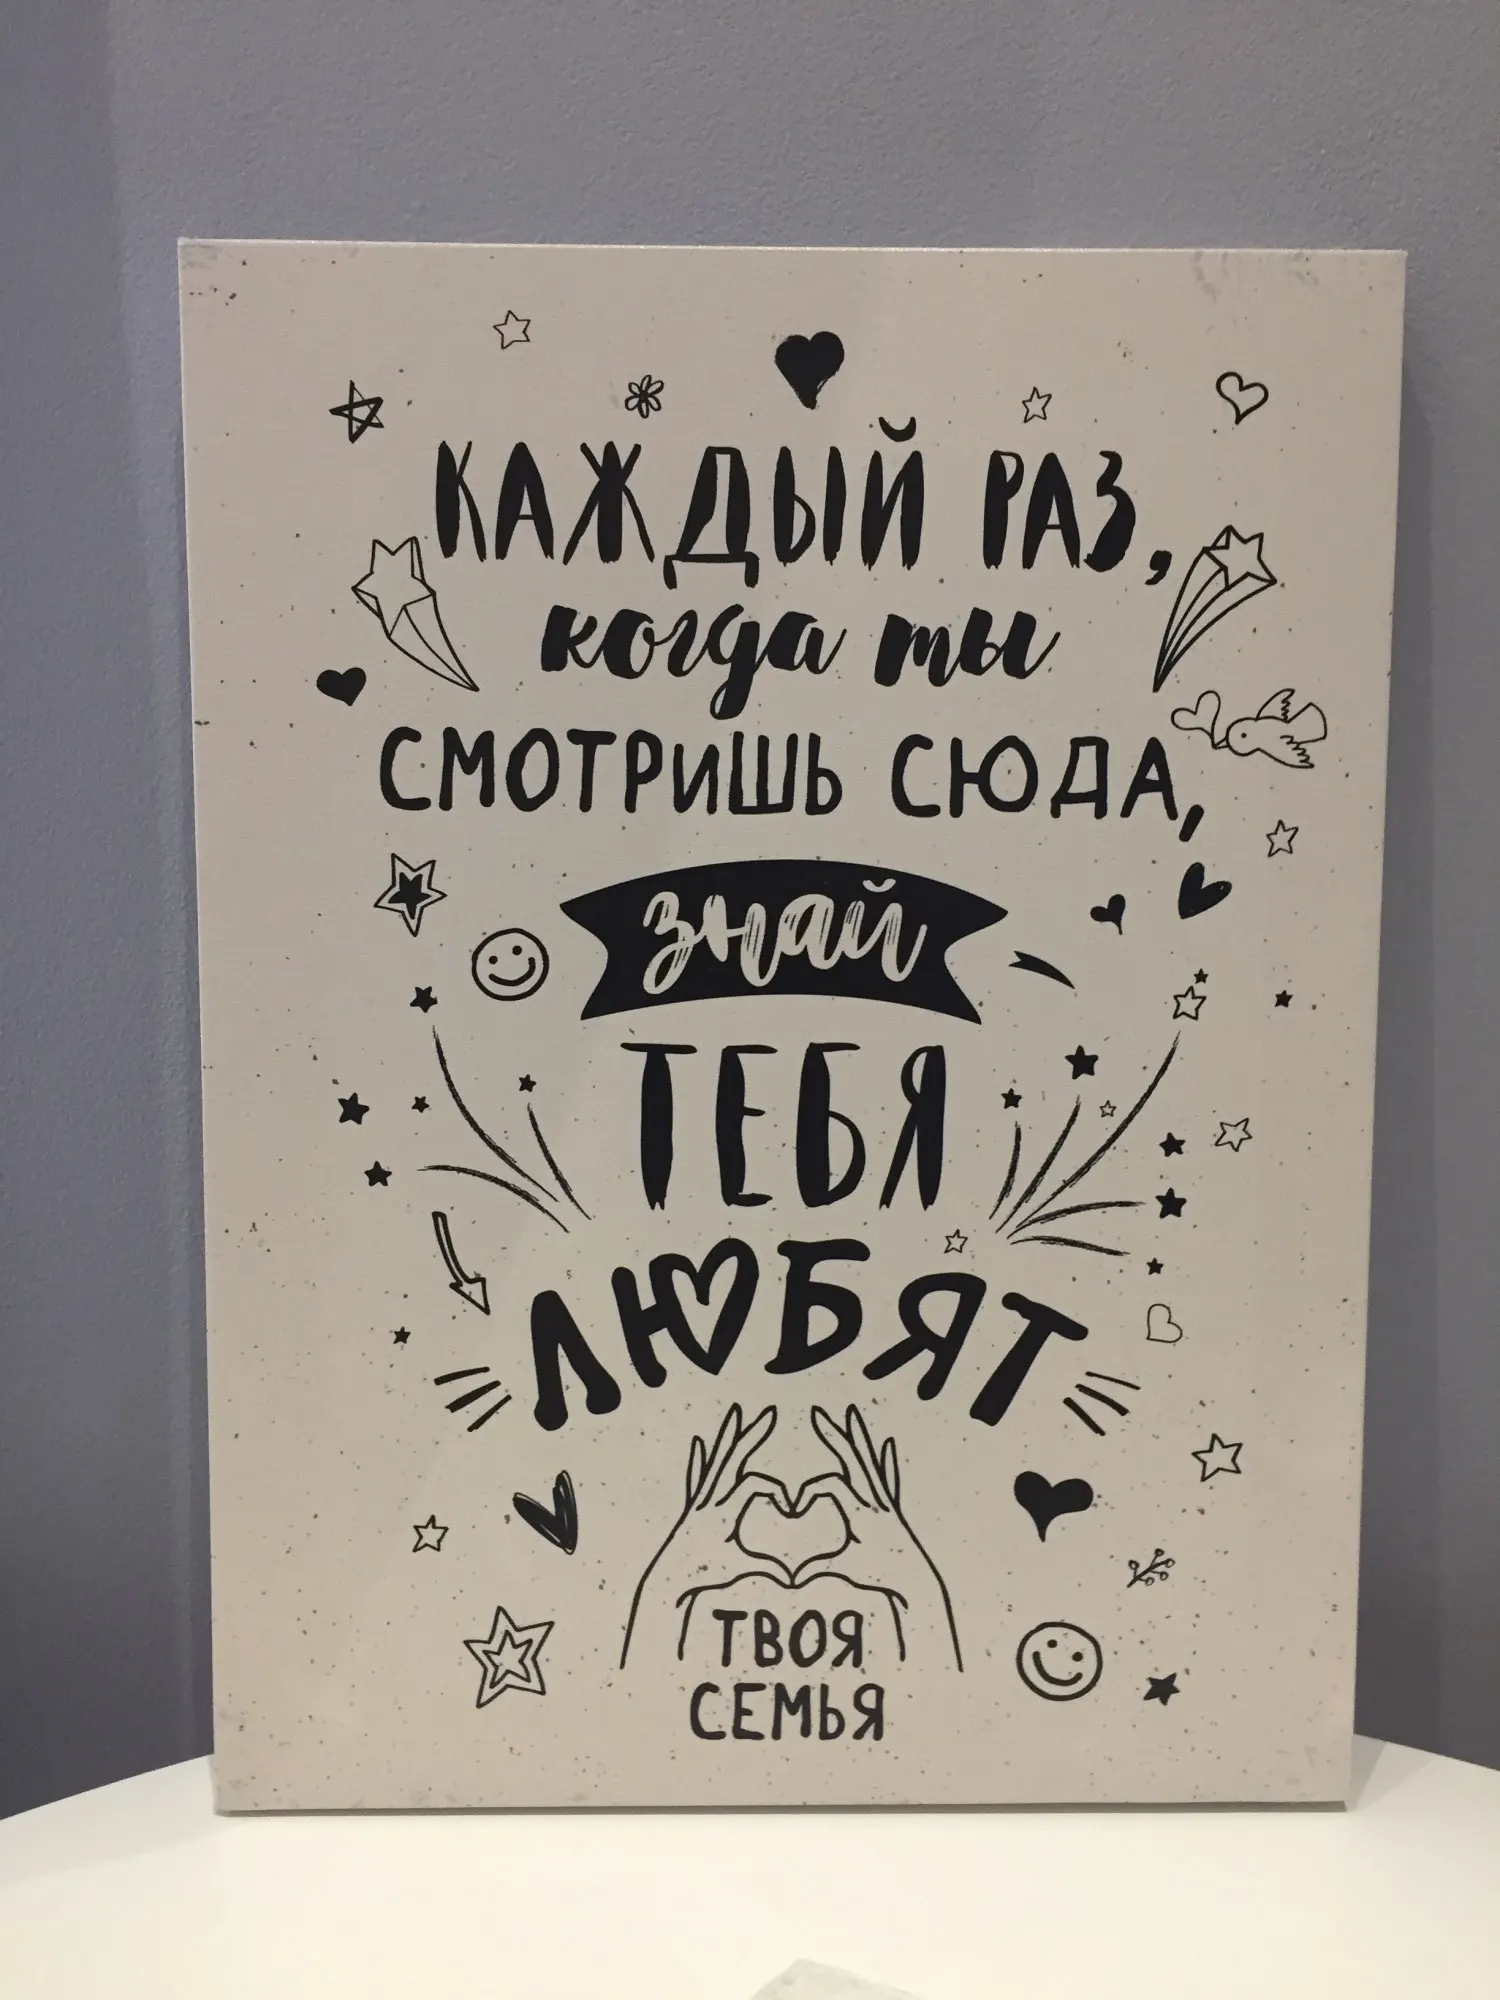 КАЖДЫЙ РАЗ,
когда ты
СМОТРИШЬ СЮДА,
знай
ТЕБЯ
ЛЮБЯТ
ТВОЯ
СЕМЬЯ